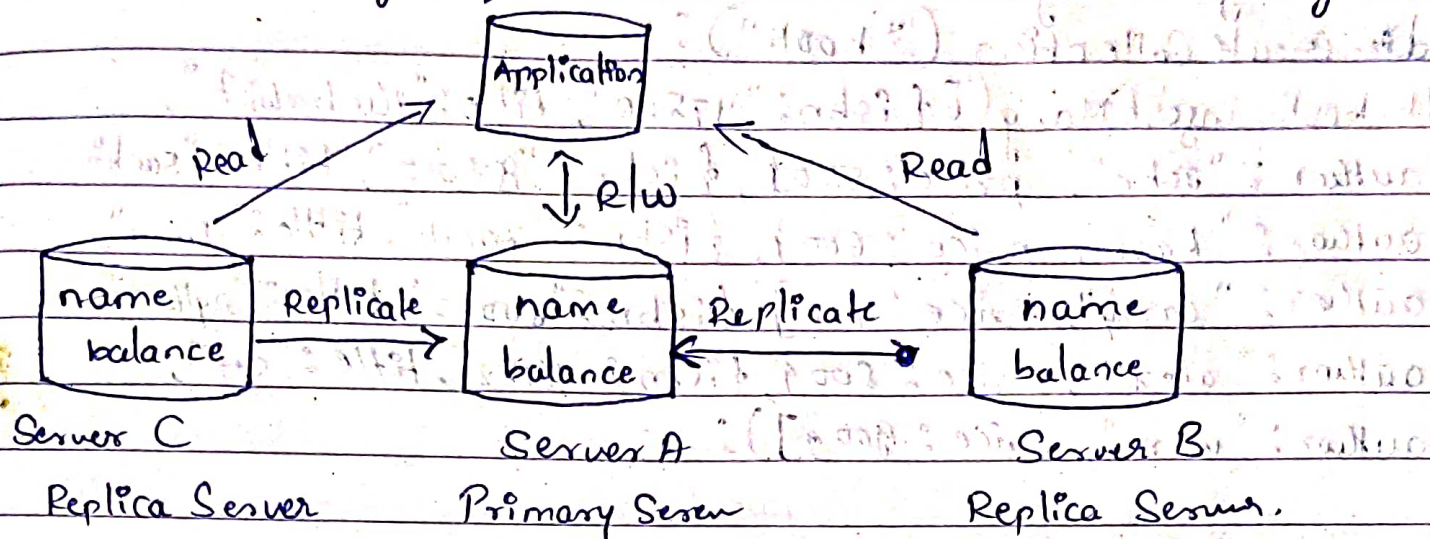 Application
Read
R/W
Read
name
balance
Replicate
name
balance
Replicate
name
balance
Server C
Server A
Server B
Replica Server
Primary Server
Replica Server.